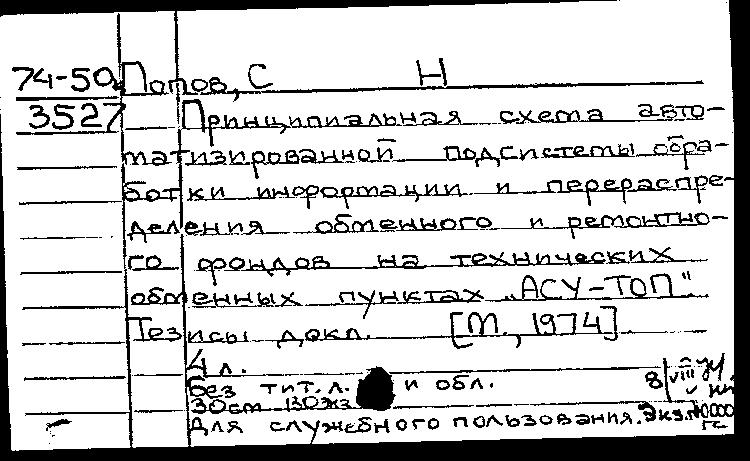 74-50 Попов, С Н
3527 Принципиальная схема авто-
матизированной подсистемы обра-
ботки информации и перераспре-
деления обменного и ремонтно-
го фондов на технических
обменных пунктах „АСУ-ТОП"
Тезисы докл. [М., 1974].
4 л.
Без тит. л. и обл. 8/VIII
30см 130жз
Для служебного пользования. Экз.№0000